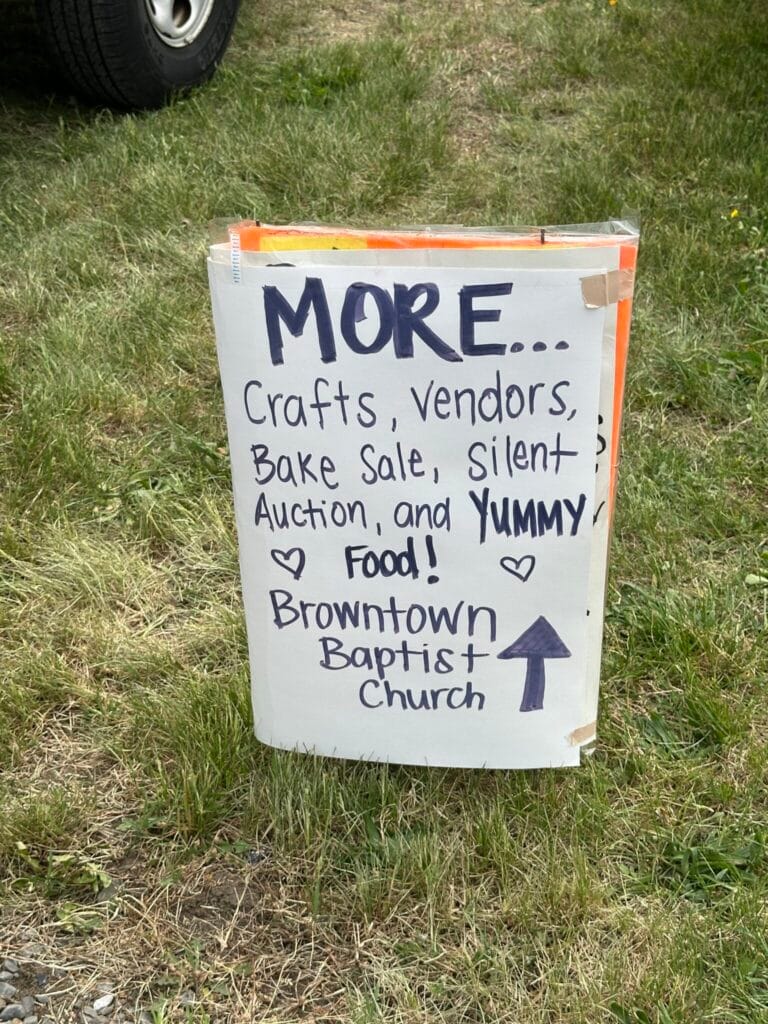 MORE...
Crafts, vendors,
Bake Sale, Silent
Auction, and YUMMY
Food!
Browntown
Baptist
Church